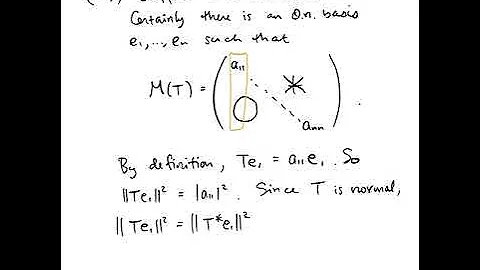 Certainly there is an O.n. basis
e₁,...,eₙ such that
M(T) = ( a₁₁ * O aₙₙ ) .
By definition, Te₁ = a₁₁e₁. So
||Te₁||² = |a₁₁|². Since T is normal,
||Te₁||² = ||T*e₁||²